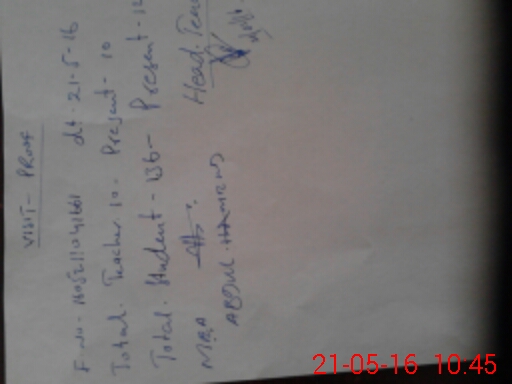 VISIT - PROOF
F.No - dt - 21-5-16
Total. Teacher. 10 - Present - 10
Total. Student - 136 - Present - 12
Head. Teac
MBA
ABDUL
21-05-16 10.45